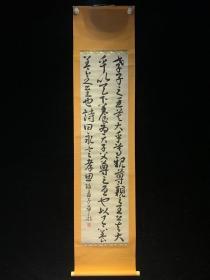 孝子之至莫大乎尊親尊親之至莫大
乎以天下養為天子父尊之至也以天下養
養之至也詩曰永言孝思